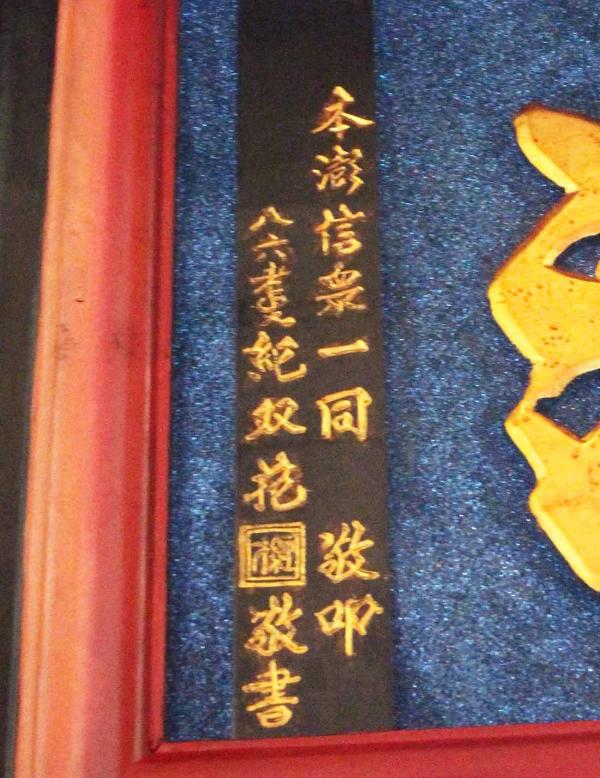 本澎信衆一同 敬叩
八六叟紀双抱 敬書